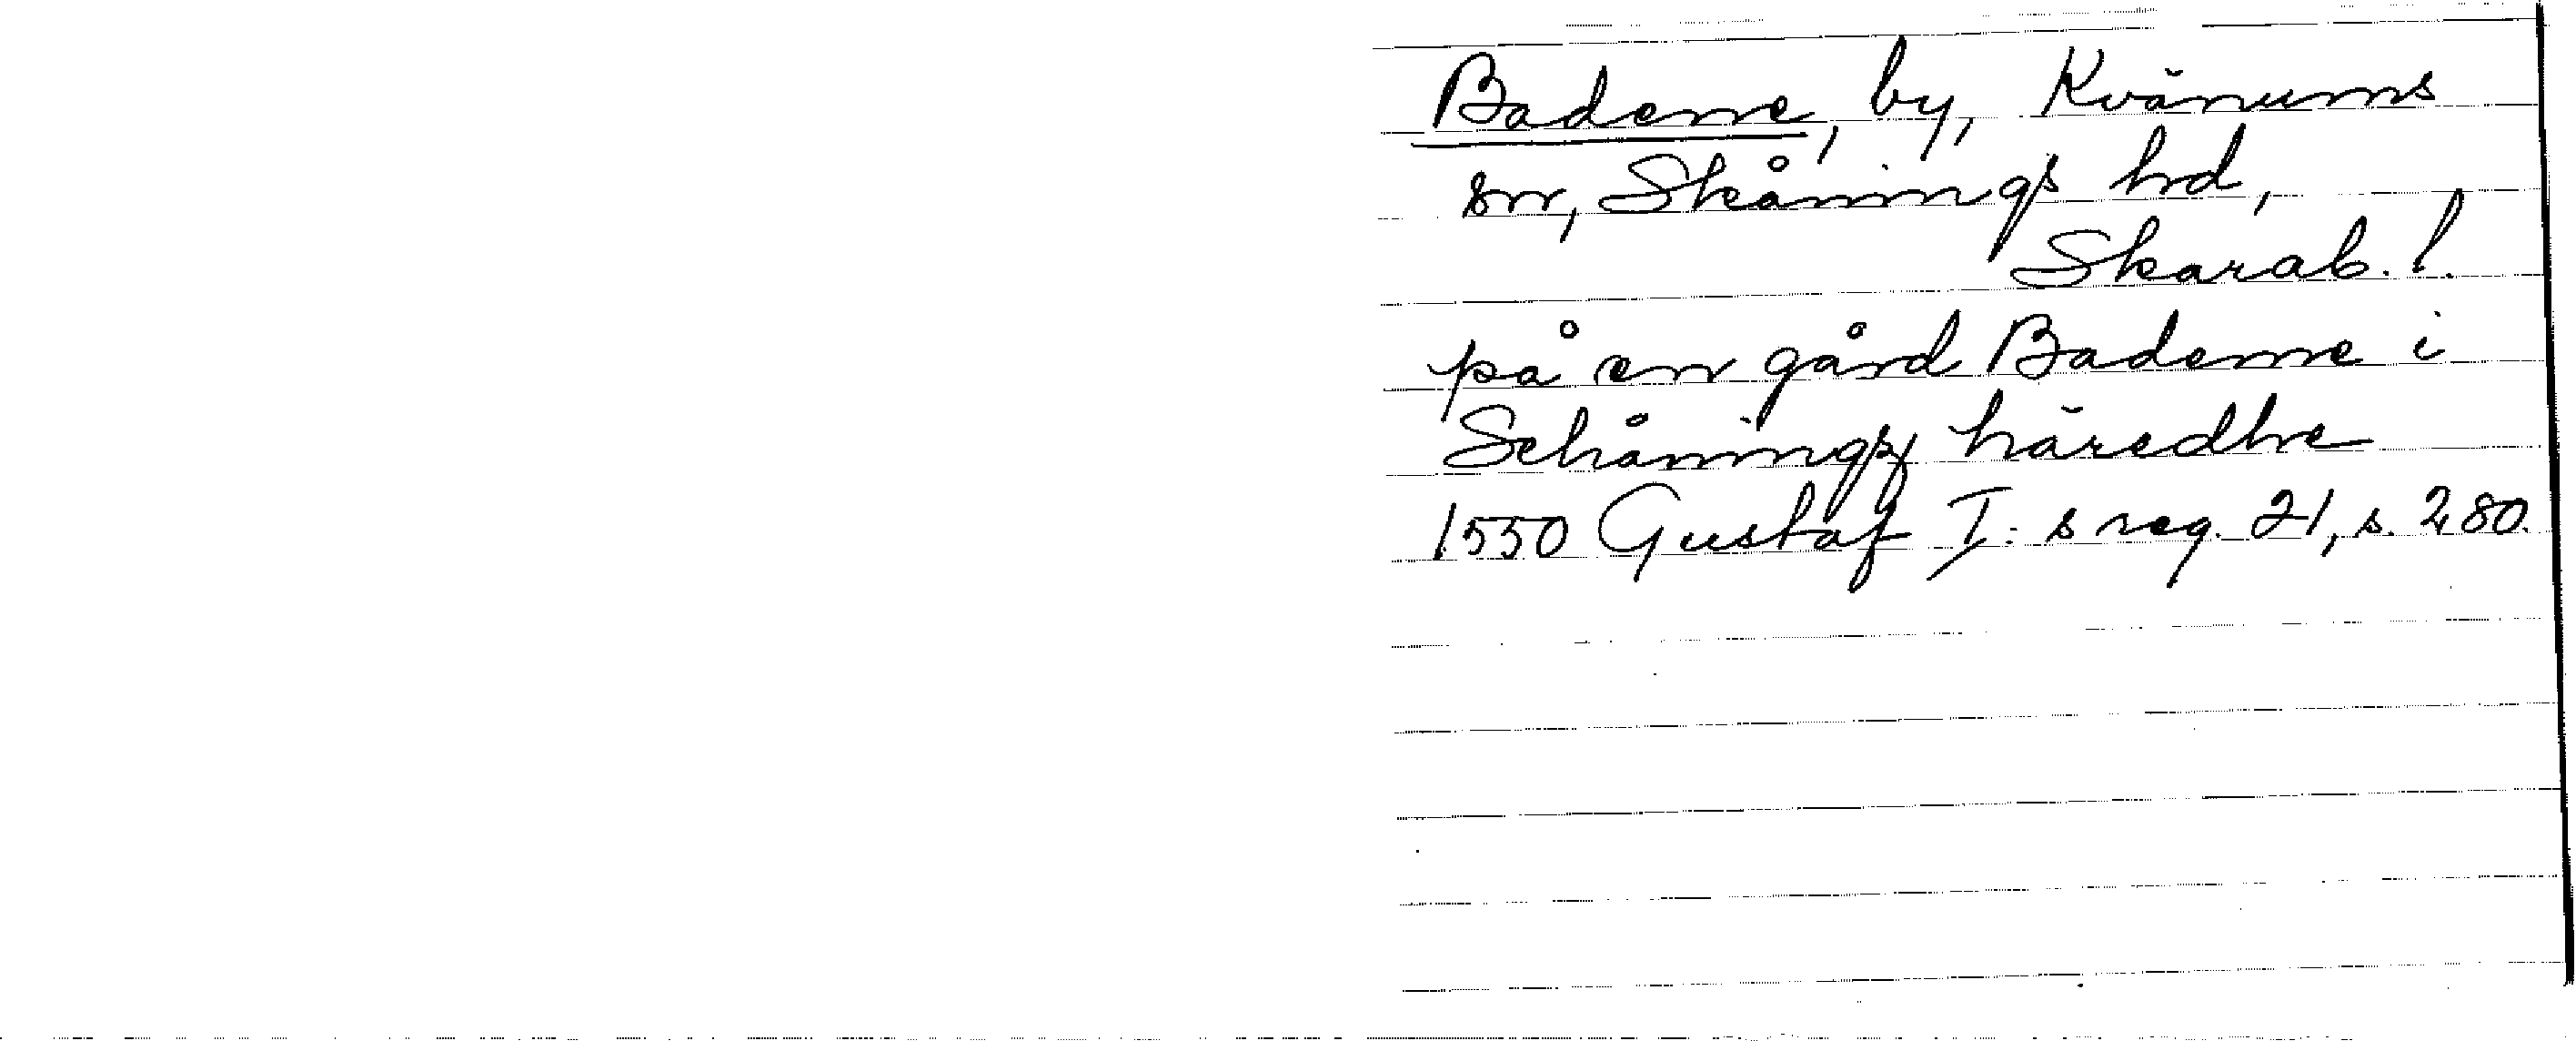 Badene, by, Kvänums
sn, Skånings hd,
Skarab. l.
på en gård Badene i
Schåningx häredhe
1550 Gustaf I:s reg. 21, s. 280.